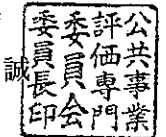 誠
公共事業
評価専門
委員会
委員長印